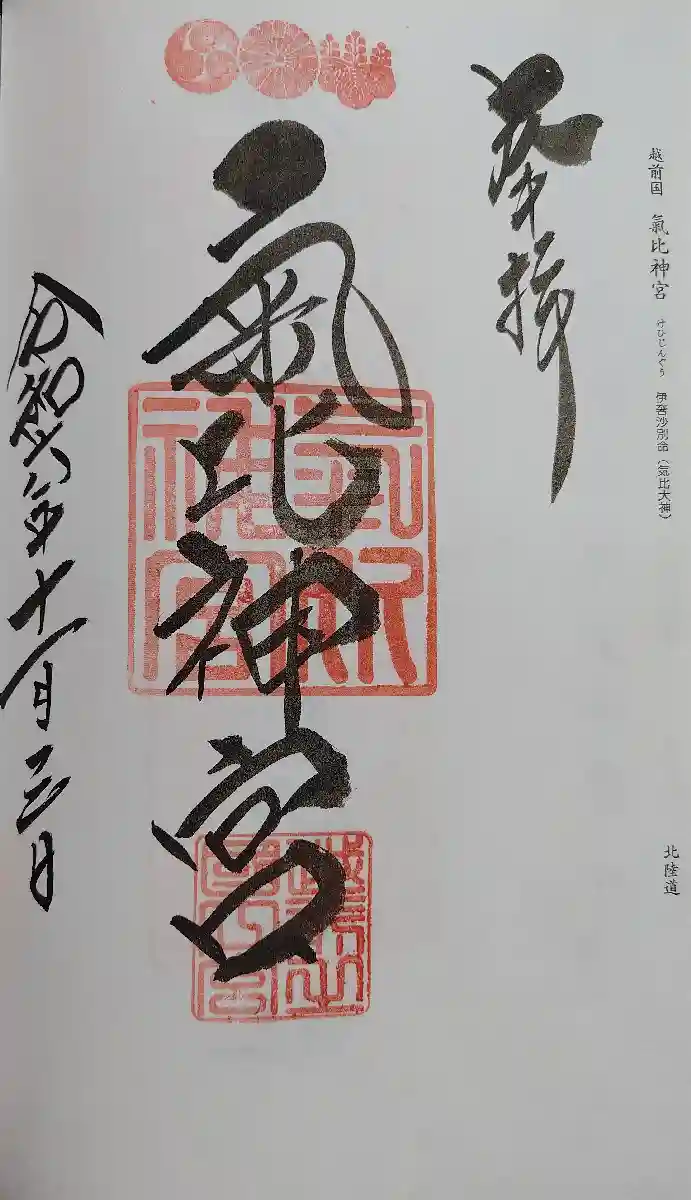 越前国 氣比神宮 けひじんぐう 伊奢沙別命(気比大神)
北陸道
奉拝
氣比神宮
氣比
神宮
令和六年十一月三日